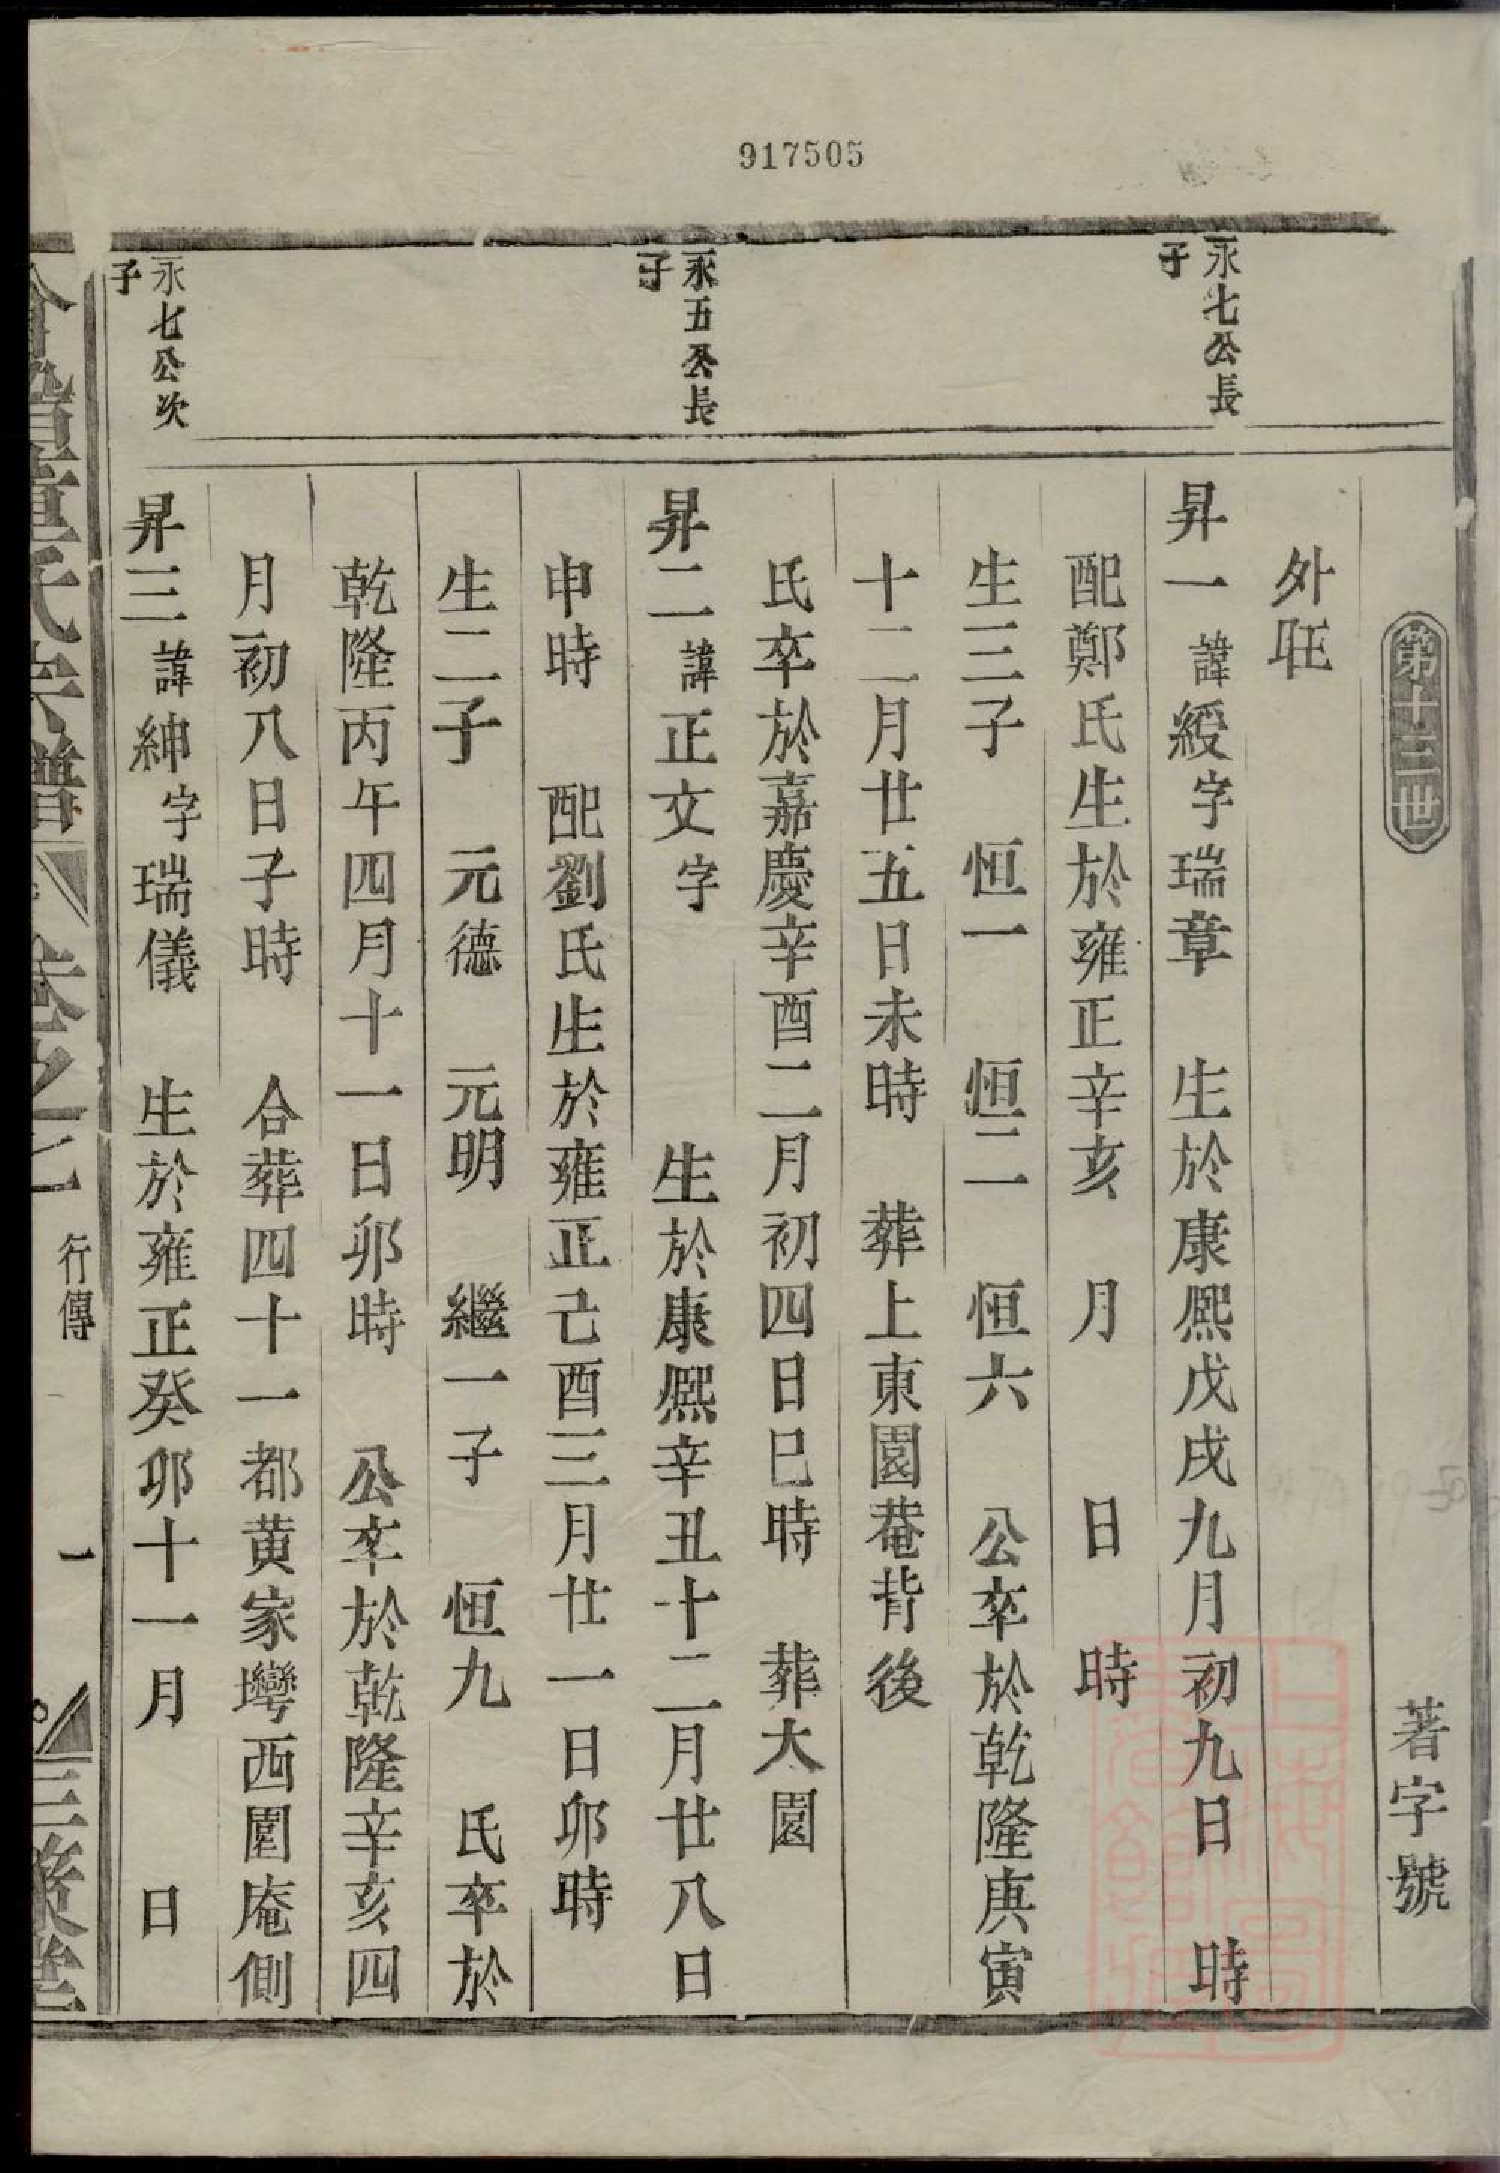 917505
第十三世
著字號
外㕵
永七公長
子
昇一諱綬字瑞章 生於康熙戊戌九月初九日 時
配鄭氏生於雍正辛亥 月 日 時
生三子 恒一 恒二 恒六 公卒於乾隆庚寅
十二月廿五日未時 葬上東園菴背後
氏卒於嘉慶辛酉二月初四日巳時 葬大園
永五公長
子
昇二諱正文字 生於康熙辛丑十二月廿八日
申時 配劉氏生於雍正己酉三月廿一日卯時
生二子 元德 元明 繼一子 恒九 氏卒於
乾隆丙午四月十一日卯時 公卒於乾隆辛亥四
月初八日子時 合葬四十一都黄家塆西園庵側
永七公次
子
昇三諱紳字瑞儀 生於雍正癸卯十一月 日
童氏宗譜 卷之七 行傳 一 三策堂